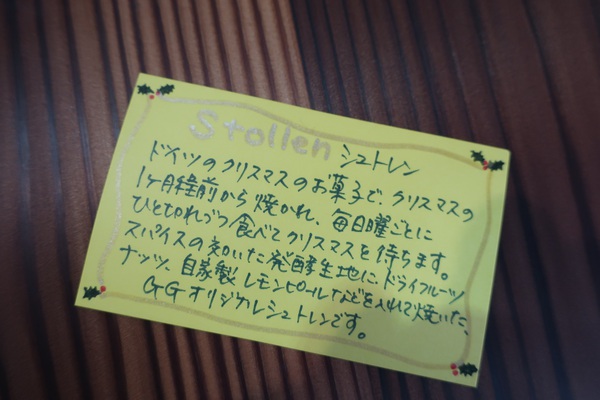 Stollen シュトレン
ドイツのクリスマスのお菓子で、クリスマスの
1ヶ月程前から焼かれ、毎日曜ごとに
ひと切れづつ食べてクリスマスを待ちます。
スパイスの効いた発酵生地に、ドライフルーツ
ナッツ、自家製レモンピールなどを入れて焼いた、
GGオリジナルシュトレンです。